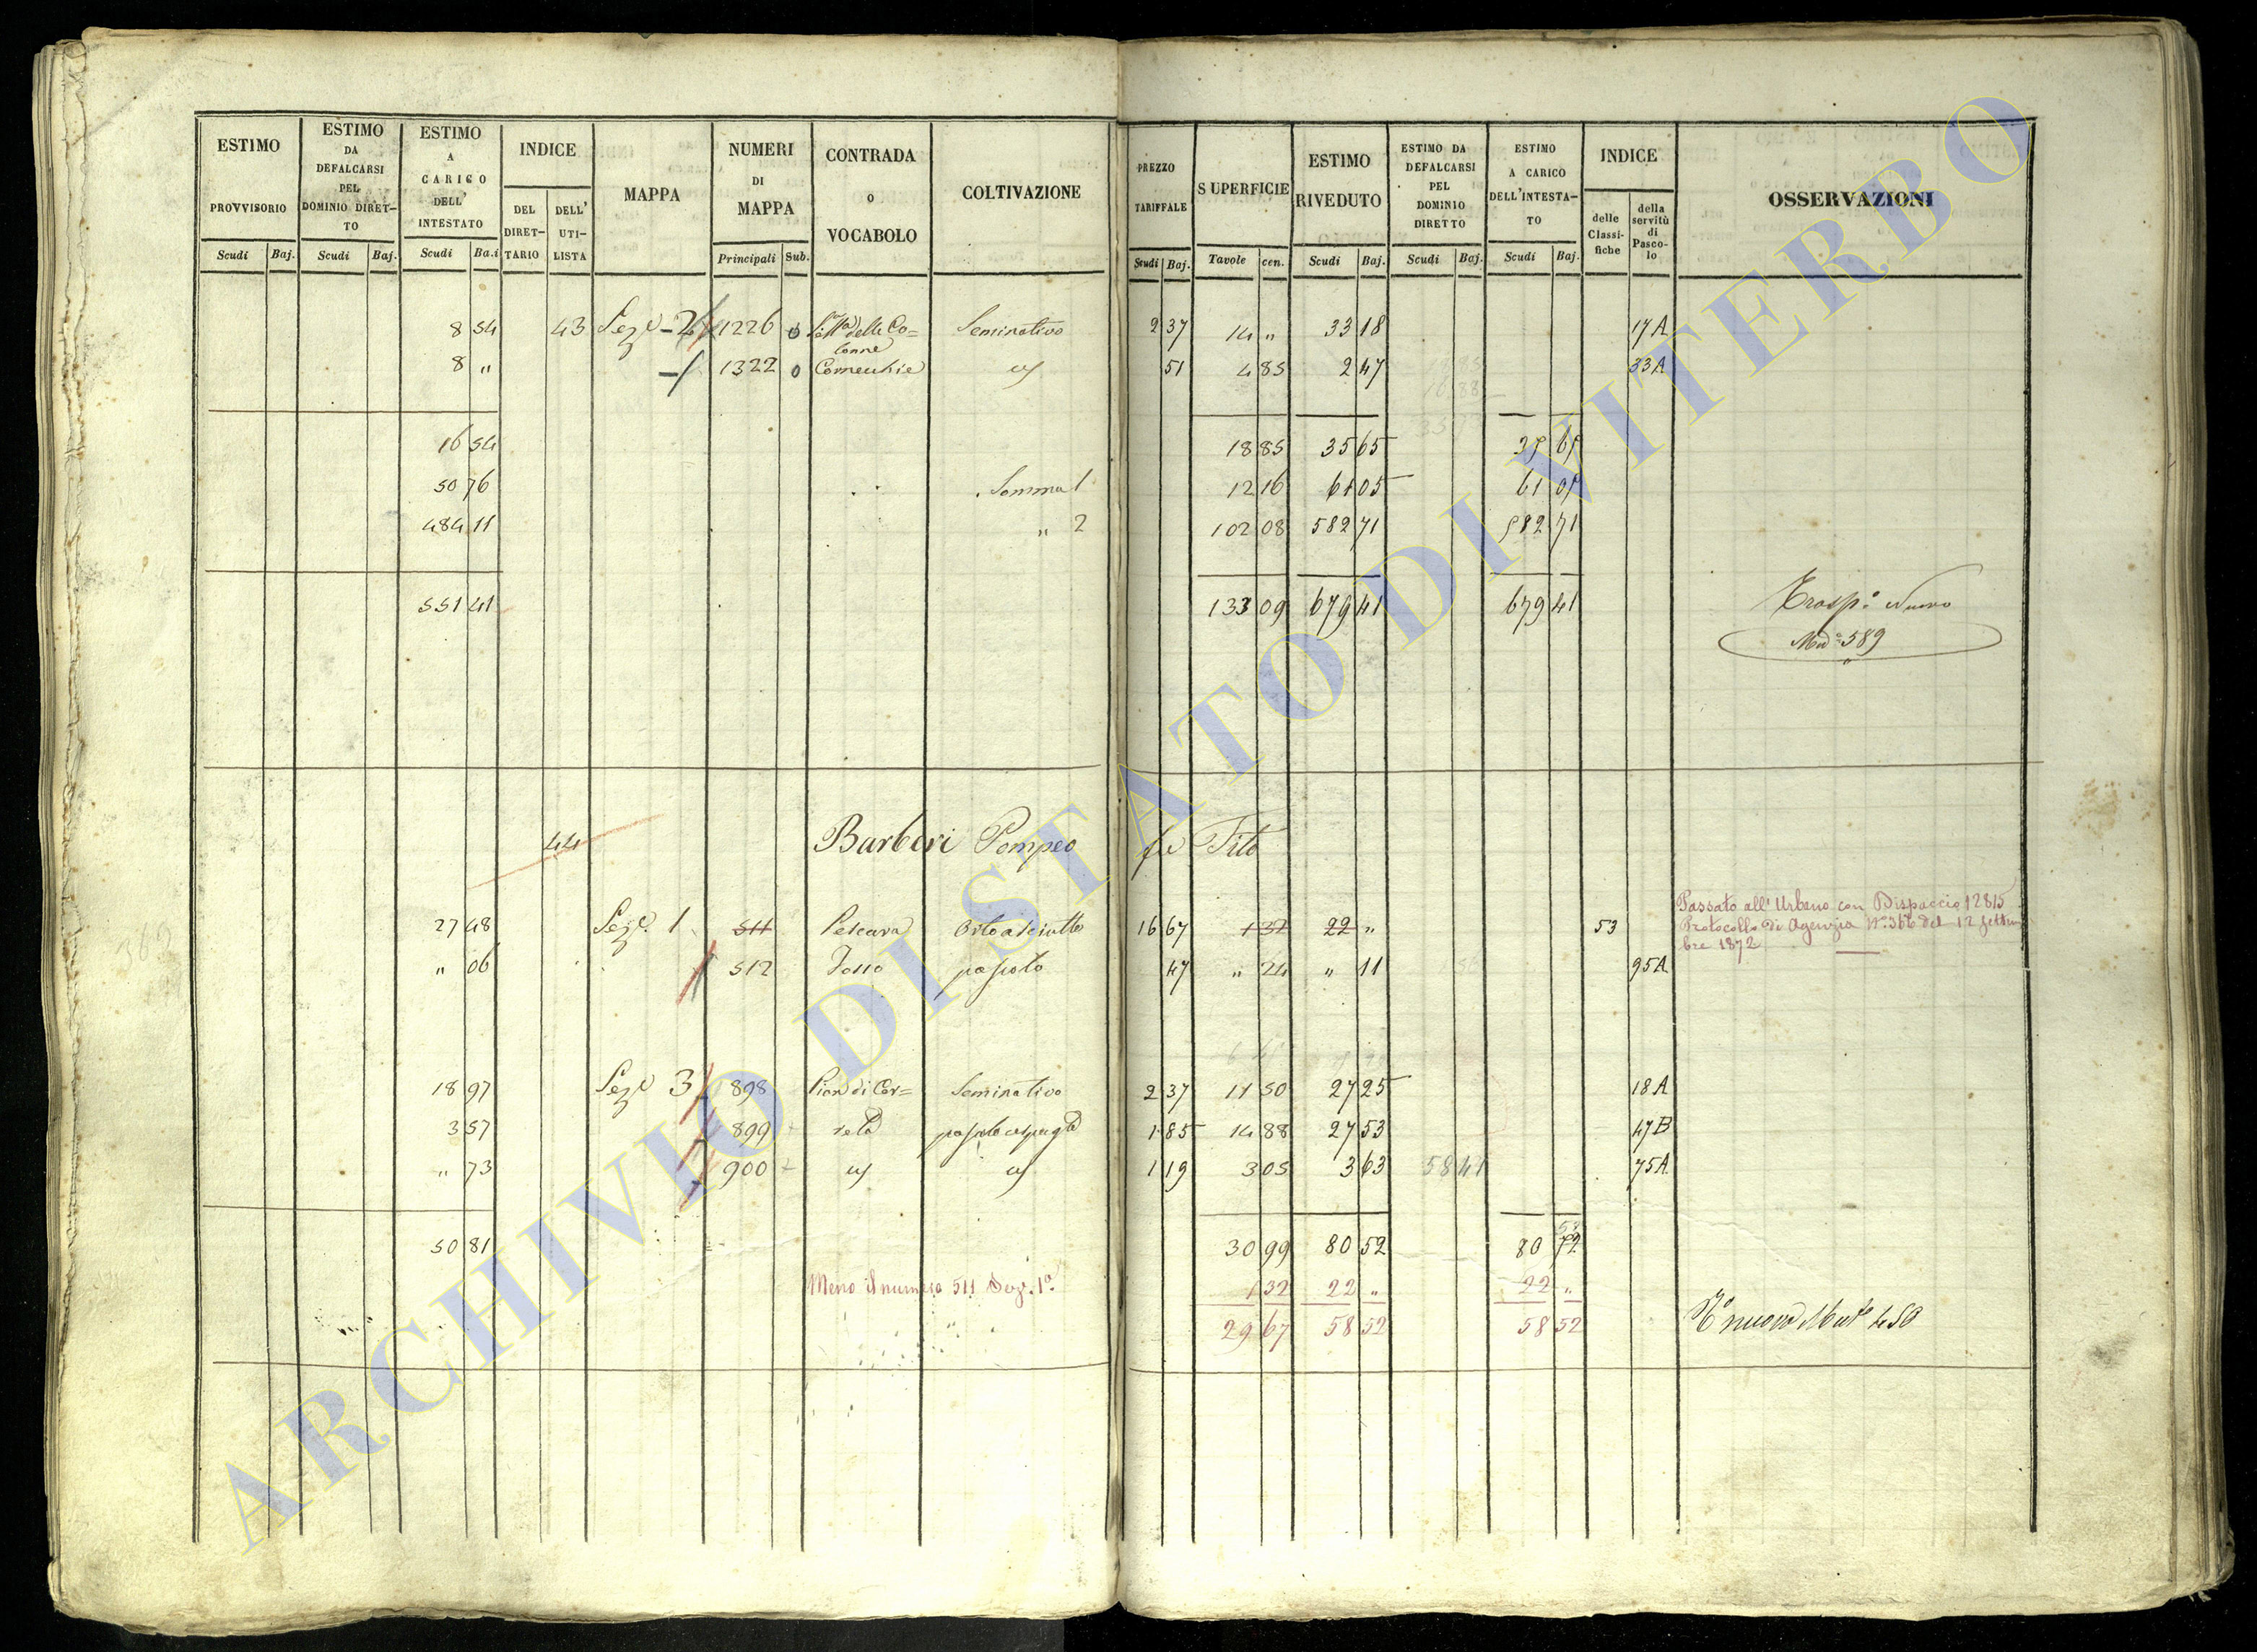 ESTIMO PROVVISORIO
ESTIMO DA DEFALCARSI PEL DOMINIO DIRETTO
ESTIMO A CARICO DELL' INTESTATO
INDICE
DEL DIRET-TARIO
DELL' UTI-LISTA
MAPPA
NUMERI DI MAPPA
CONTRADA O VOCABOLO
COLTIVAZIONE
PREZZO TARIFFALE
SUPERFICIE
ESTIMO RIVEDUTO
ESTIMO DA DEFALCARSI PEL DOMINIO DIRETTO
ESTIMO A CARICO DELL'INTESTA-TO
INDICE
delle Classi-fiche
della servitù di Pasco-lo
OSSERVAZIONI
Scudi Baj. Scudi Baj. Scudi Ba.i Principali Sub. Scudi Baj. Tavole cen. Scudi Baj. Scudi Baj. Scudi Baj.
8 54 43 Sez.e 2 1226 0 delle Co= Seminativo 2 37 14 " 33 18 17A
lonne
8 " 1322 0 Comeuhie 51 4 85 2 47 33A
16 54 18 85 35 65 35 65
50 76 Somma 1 12 16 61 05 61 05
484 11 " 2 102 08 582 71 582 71
551 41 133 09 679 41 679 41 Trasp.o Nuovo
589
44 Barberi Pompeo fu Tito
27 48 Sez.e 1 511 Pescara Orto asciutto 16 67 1 32 22 " 53 Passato all'Urbano con Dispaccio 12815
Protocollo di Agenzia N.o 366 del 12 Settem
bre 1872
" 06 512 Fosso pascolo 47 " 24 " 11 95A
18 97 Sez.e 3 898 Pian di Cor= Seminativo 2 37 11 50 27 25 18A
3 57 899 neto 1 85 14 88 27 53 47B
" 73 900 1 19 3 05 3 63 58 41 75A
50 81 30 99 80 52 80 52
Meno il numero 511 Sez. 1a 1 32 22 " 22 "
29 67 58 52 58 52 nuovo 450
ARCHIVIO DI STATO DI VITERBO